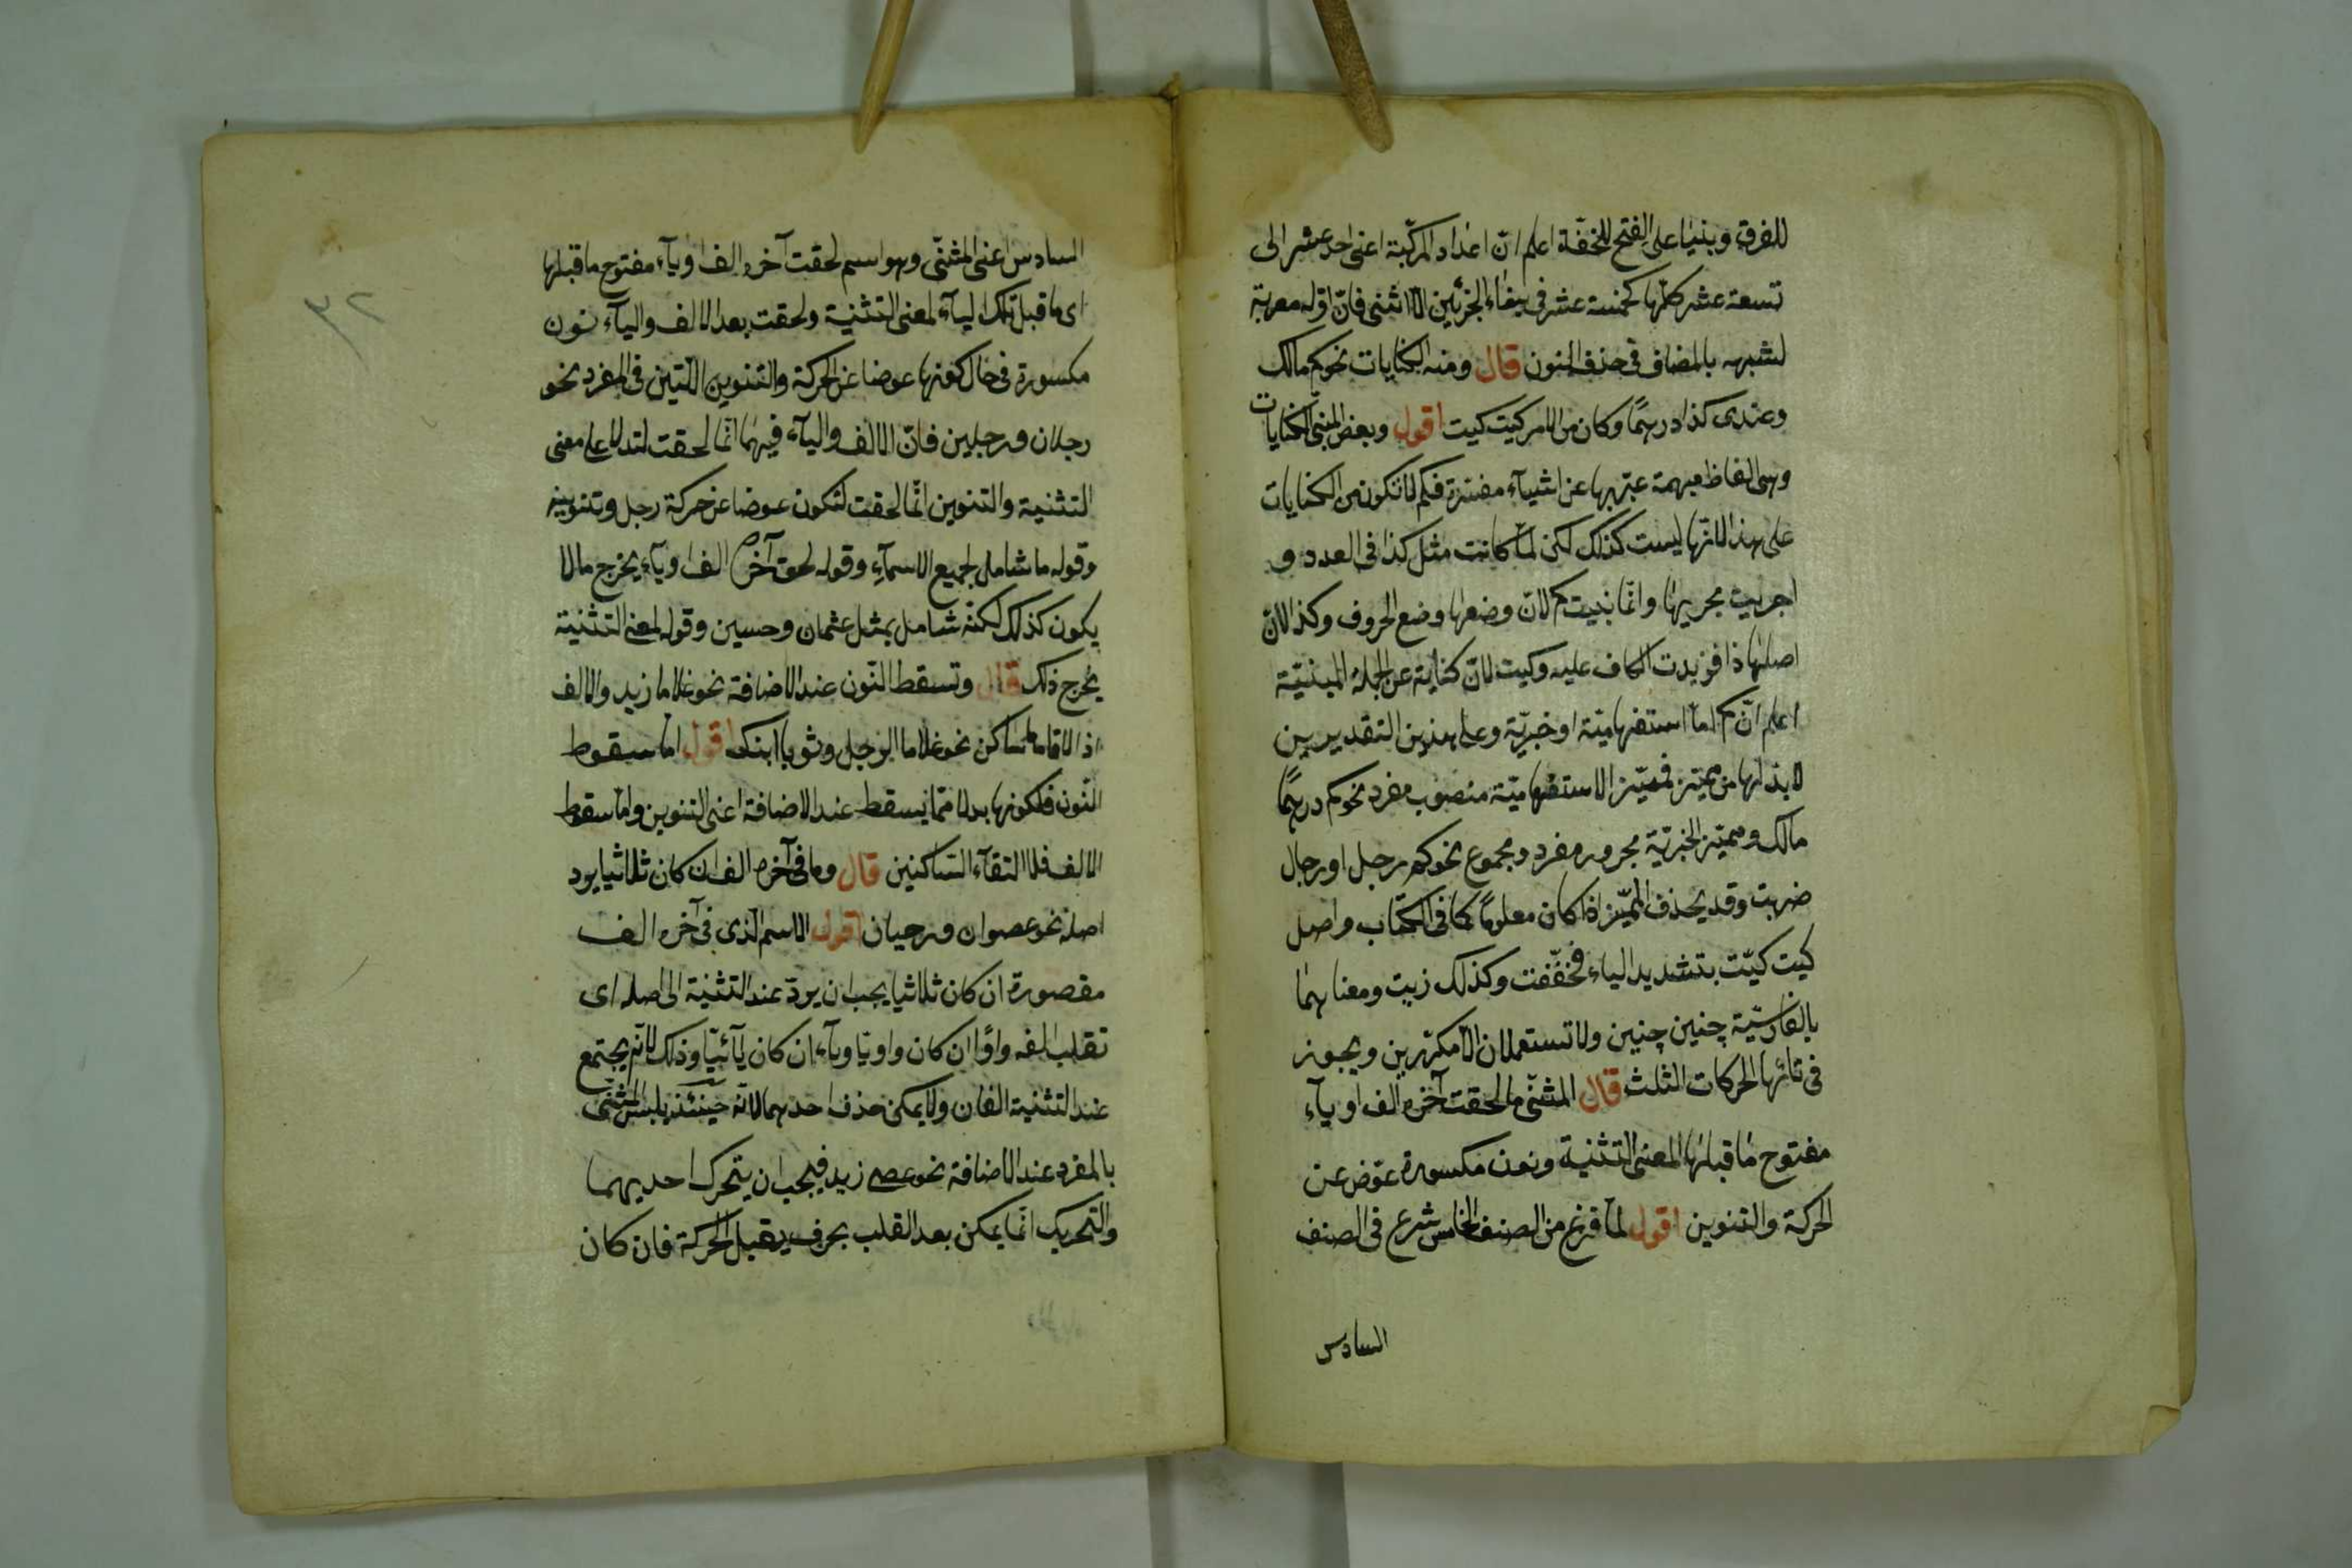 للفرق وبنيا على الفتح للخفة اعلم ان اعداد المركبة اعنى احد عشر الى
تسعة عشر كلها كخمسة عشر فى بناء الجزئين الا اثنى فان اوله معربة
لشبهه بالمضاف فى حذف النون قال ومنه الكنايات نحو كم مالك
وعندى كذا درهمًا وكان من الامر كيت كيت اقول وبعض المبنى الكنايات
وهى الفاظ مبهمة عبّر بها عن اشيآء مفسّرة فكم لا تكون من الكنايات
على هذا لانها ليست كذلك لكن لمّا كانت مثل كذا فى العدد و
اجريت مجريها وانّما بنيت كم لانّ وضعها وضع الحروف وكذا لانّ
اصلها ذا فزيدت الكاف عليه وكيت لانّ كناية عن الجملة المبنيّة
اعلم انّ كم امّا استفهاميّة او خبريّة وعلى هذين التقديرين
لا بدّ لها من مميّز فمميّز الاستفهاميّة منصوب مفرد نحو كم درهمًا
مالك ومميّز الخبريّة مجرور مفرد ومجموع نحو كم رجل او رجال
ضربت وقد يحذف المميّز اذا كان معلومًا كما فى الكتاب واصل
كيت كيّت بتشديد الياء فخفّفت وكذلك زيت ومعناهما
بالفارسيّة چنين چنين ولا تستعملان الّا مكرّرين ويجوز
فى تائها الحركات الثلث قال المثنّى ما لحقت آخره الف او يآء
مفتوح ما قبلها لمعنى التثنية ونون مكسورة عوّض عن
الحركة والتنوين اقول لمّا فرغ من الصنف الخامس شرع فى الصنف
السادس
٣٢
السادس اعنى المثنّى وهو اسم لحقت آخره الف او يآء مفتوح ما قبلها
اى ما قبل تلك اليآء لمعنى التثنية ولحقت بعد الالف واليآء نون
مكسورة فى حال كونها عوضا عن الحركة والتنوين اللّتين فى المفرد نحو
رجلان ورجلين فانّ الالف واليآء فيهما انّما لحقت لتدلا على معنى
التثنية والتنوين انّما لحقت لتكون عوضا عن حركة رجل وتنوينه
وقوله ما شامل لجميع الاسمآء وقوله لحق آخره الف او يآء يخرج ما لا
يكون كذلك لكنّه شامل بمثل عثمان وحسين وقوله لمعنى التثنية
يخرج ذلك قال وتسقط النّون عند الاضافة نحو غلاما زيد والالف
اذا لاقاها ساكن نحو غلاما الرجل وثوبا ابنك اقول امّا سقوط
النّون فلكونها بدلا ممّا يسقط عند الاضافة اعنى التنوين وامّا سقوط
الالف فلالتقآء السّاكنين قال وما فى آخره الف ان كان ثلاثيا يرد
اصله نحو عصوان ورحيان اقول الاسم الّذى فى آخره الف
مقصورة ان كان ثلاثيا يجب ان يردّ عند التثنية الى اصله اى
تقلب الفه واوًا ان كان واويّا ويآء ان كان يآئيّا وذلك لانّه يجتمع
عند التثنية الفان ولا يمكن حذف احدهما لانّه حينئذ يلبس المثنّى
بالمفرد عند الاضافة نحو عصى زيد فيجب ان يتحرك احديهما
والتحريك انّما يمكن بعد القلب بحرف يقبل الحركة فان كان